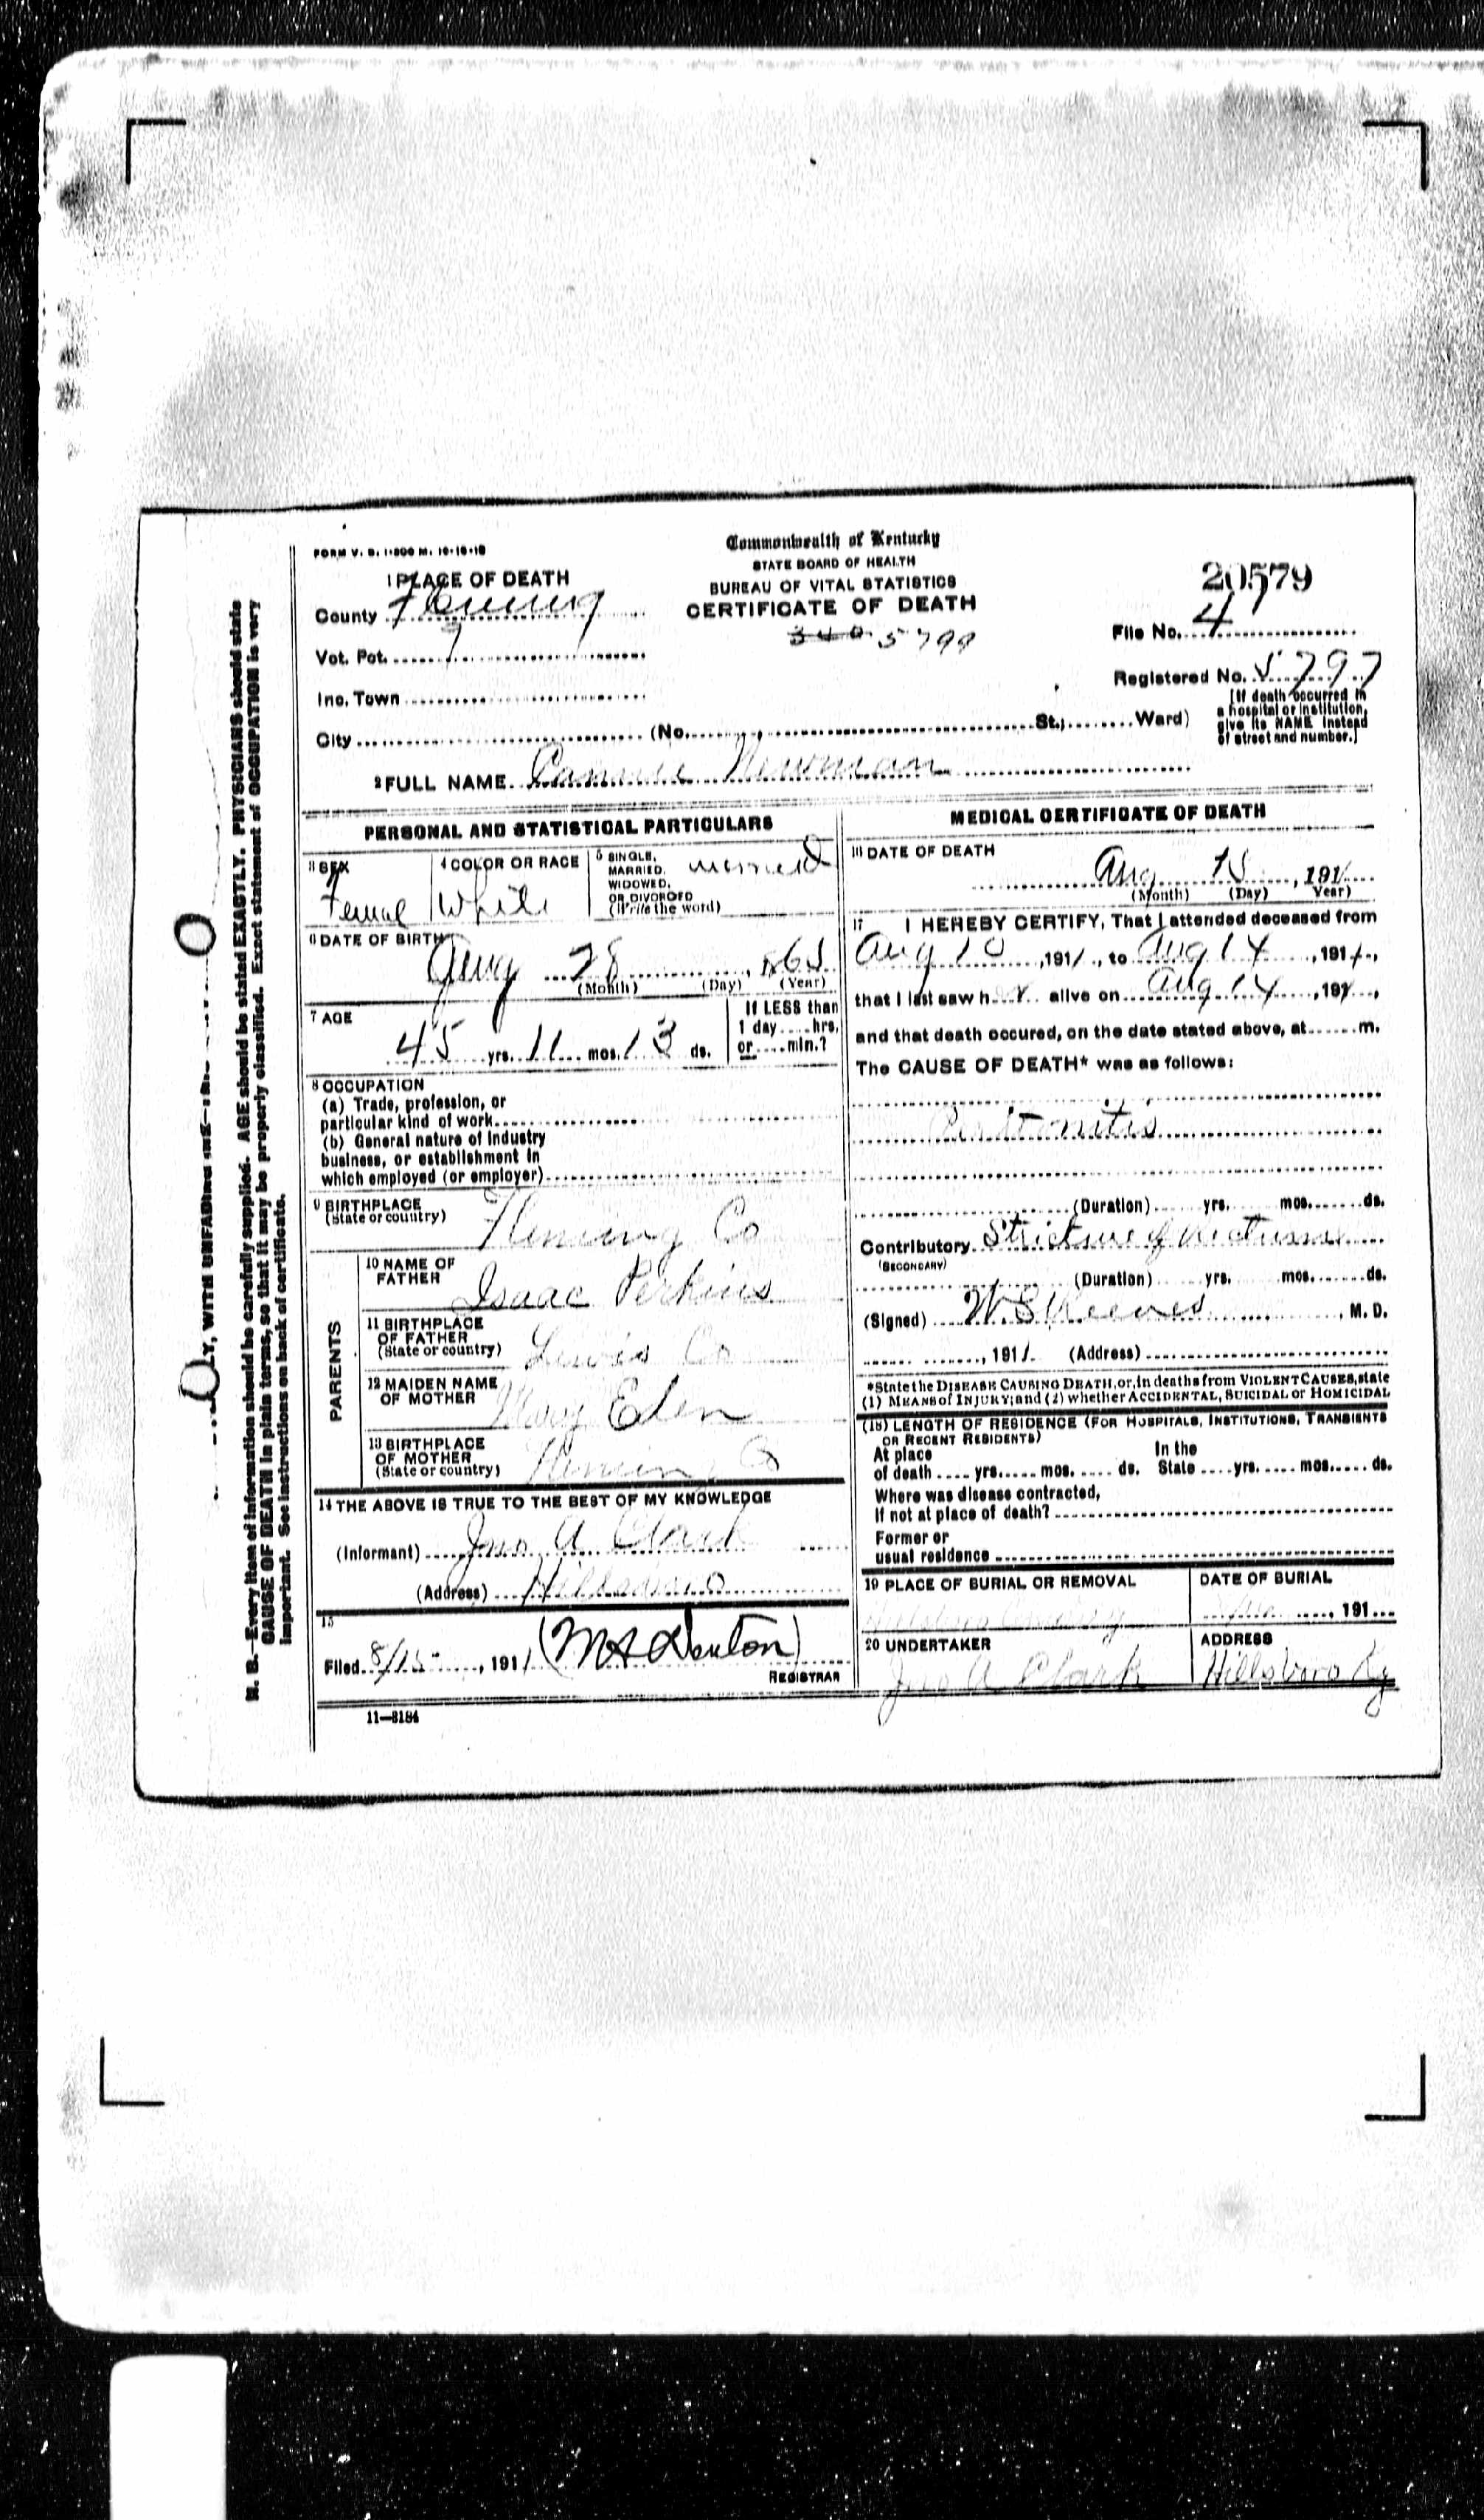 FORM V. S. 1-500 M. 10-18-10
Commonwealth of Kentucky
STATE BOARD OF HEALTH
BUREAU OF VITAL STATISTICS
CERTIFICATE OF DEATH
340 5799
20579
1 PLACE OF DEATH
County Fleming
Vot. Pct. 9
Inc. Town
City (No. St.; Ward)
File No. 4
Registered No. 5797
[If death occurred in
a hospital or institution,
give its NAME instead
of street and number.]
2 FULL NAME Newman
PERSONAL AND STATISTICAL PARTICULARS
3 SEX
Femal
4 COLOR OR RACE
White
5 SINGLE,
MARRIED,
WIDOWED,
OR DIVORCED
(Write the word)
married
6 DATE OF BIRTH
28
(Month) (Day) (Year)
7 AGE
45 yrs. 11 mos. 13 ds.
If LESS than
1 day....hrs.
or....min.?
8 OCCUPATION
(a) Trade, profession, or
particular kind of work
(b) General nature of industry
business, or establishment in
which employed (or employer)
9 BIRTHPLACE
(State or country) Fleming Co
PARENTS
10 NAME OF
FATHER Isaac Perkins
11 BIRTHPLACE
OF FATHER
(State or country) Lewis Co
12 MAIDEN NAME
OF MOTHER Mary Eden
13 BIRTHPLACE
OF MOTHER
(State or country) Fleming Co
14 THE ABOVE IS TRUE TO THE BEST OF MY KNOWLEDGE
(Informant) Jno A Clark
(Address) Hillsboro
15
Filed 8/15, 1911 (M A Denton)
REGISTRAR
11—3184
MEDICAL CERTIFICATE OF DEATH
16 DATE OF DEATH
Aug 15, 1911
(Month) (Day) Year)
17 I HEREBY CERTIFY, That I attended deceased from
Aug 10, 1911, to Aug 14, 1911,
that I last saw h r alive on Aug 14, 191,
and that death occured, on the date stated above, at......m.
The CAUSE OF DEATH* was as follows:
Peritonitis
(Duration) yrs. mos. ds.
Contributory Stricture of Rectum
(SECONDARY)
(Duration) yrs. mos. ds.
(Signed) W S Reeves, M. D.
, 1911 (Address)
*State the DISEASE CAUSING DEATH, or, in deaths from VIOLENT CAUSES, state
(1) MEANS of INJURY; and (2) whether ACCIDENTAL, SUICIDAL or HOMICIDAL
(18) LENGTH OF RESIDENCE (FOR HOSPITALS, INSTITUTIONS, TRANSIENTS
OR RECENT RESIDENTS)
At place In the
of death .... yrs..... mos. .... ds. State ....yrs. .... mos..... ds.
Where was disease contracted,
If not at place of death?
Former or
usual residence
19 PLACE OF BURIAL OR REMOVAL
DATE OF BURIAL
, 191...
20 UNDERTAKER
Jno A Clark
ADDRESS
Hillsboro Ky
LY, WITH UNFADING
N. B.—Every item of information should be carefully supplied. AGE should be stated EXACTLY. PHYSICIANS should state
CAUSE OF DEATH in plain terms, so that it may be properly classified. Exact statement of OCCUPATION is very
important. See instructions on back of certificate.